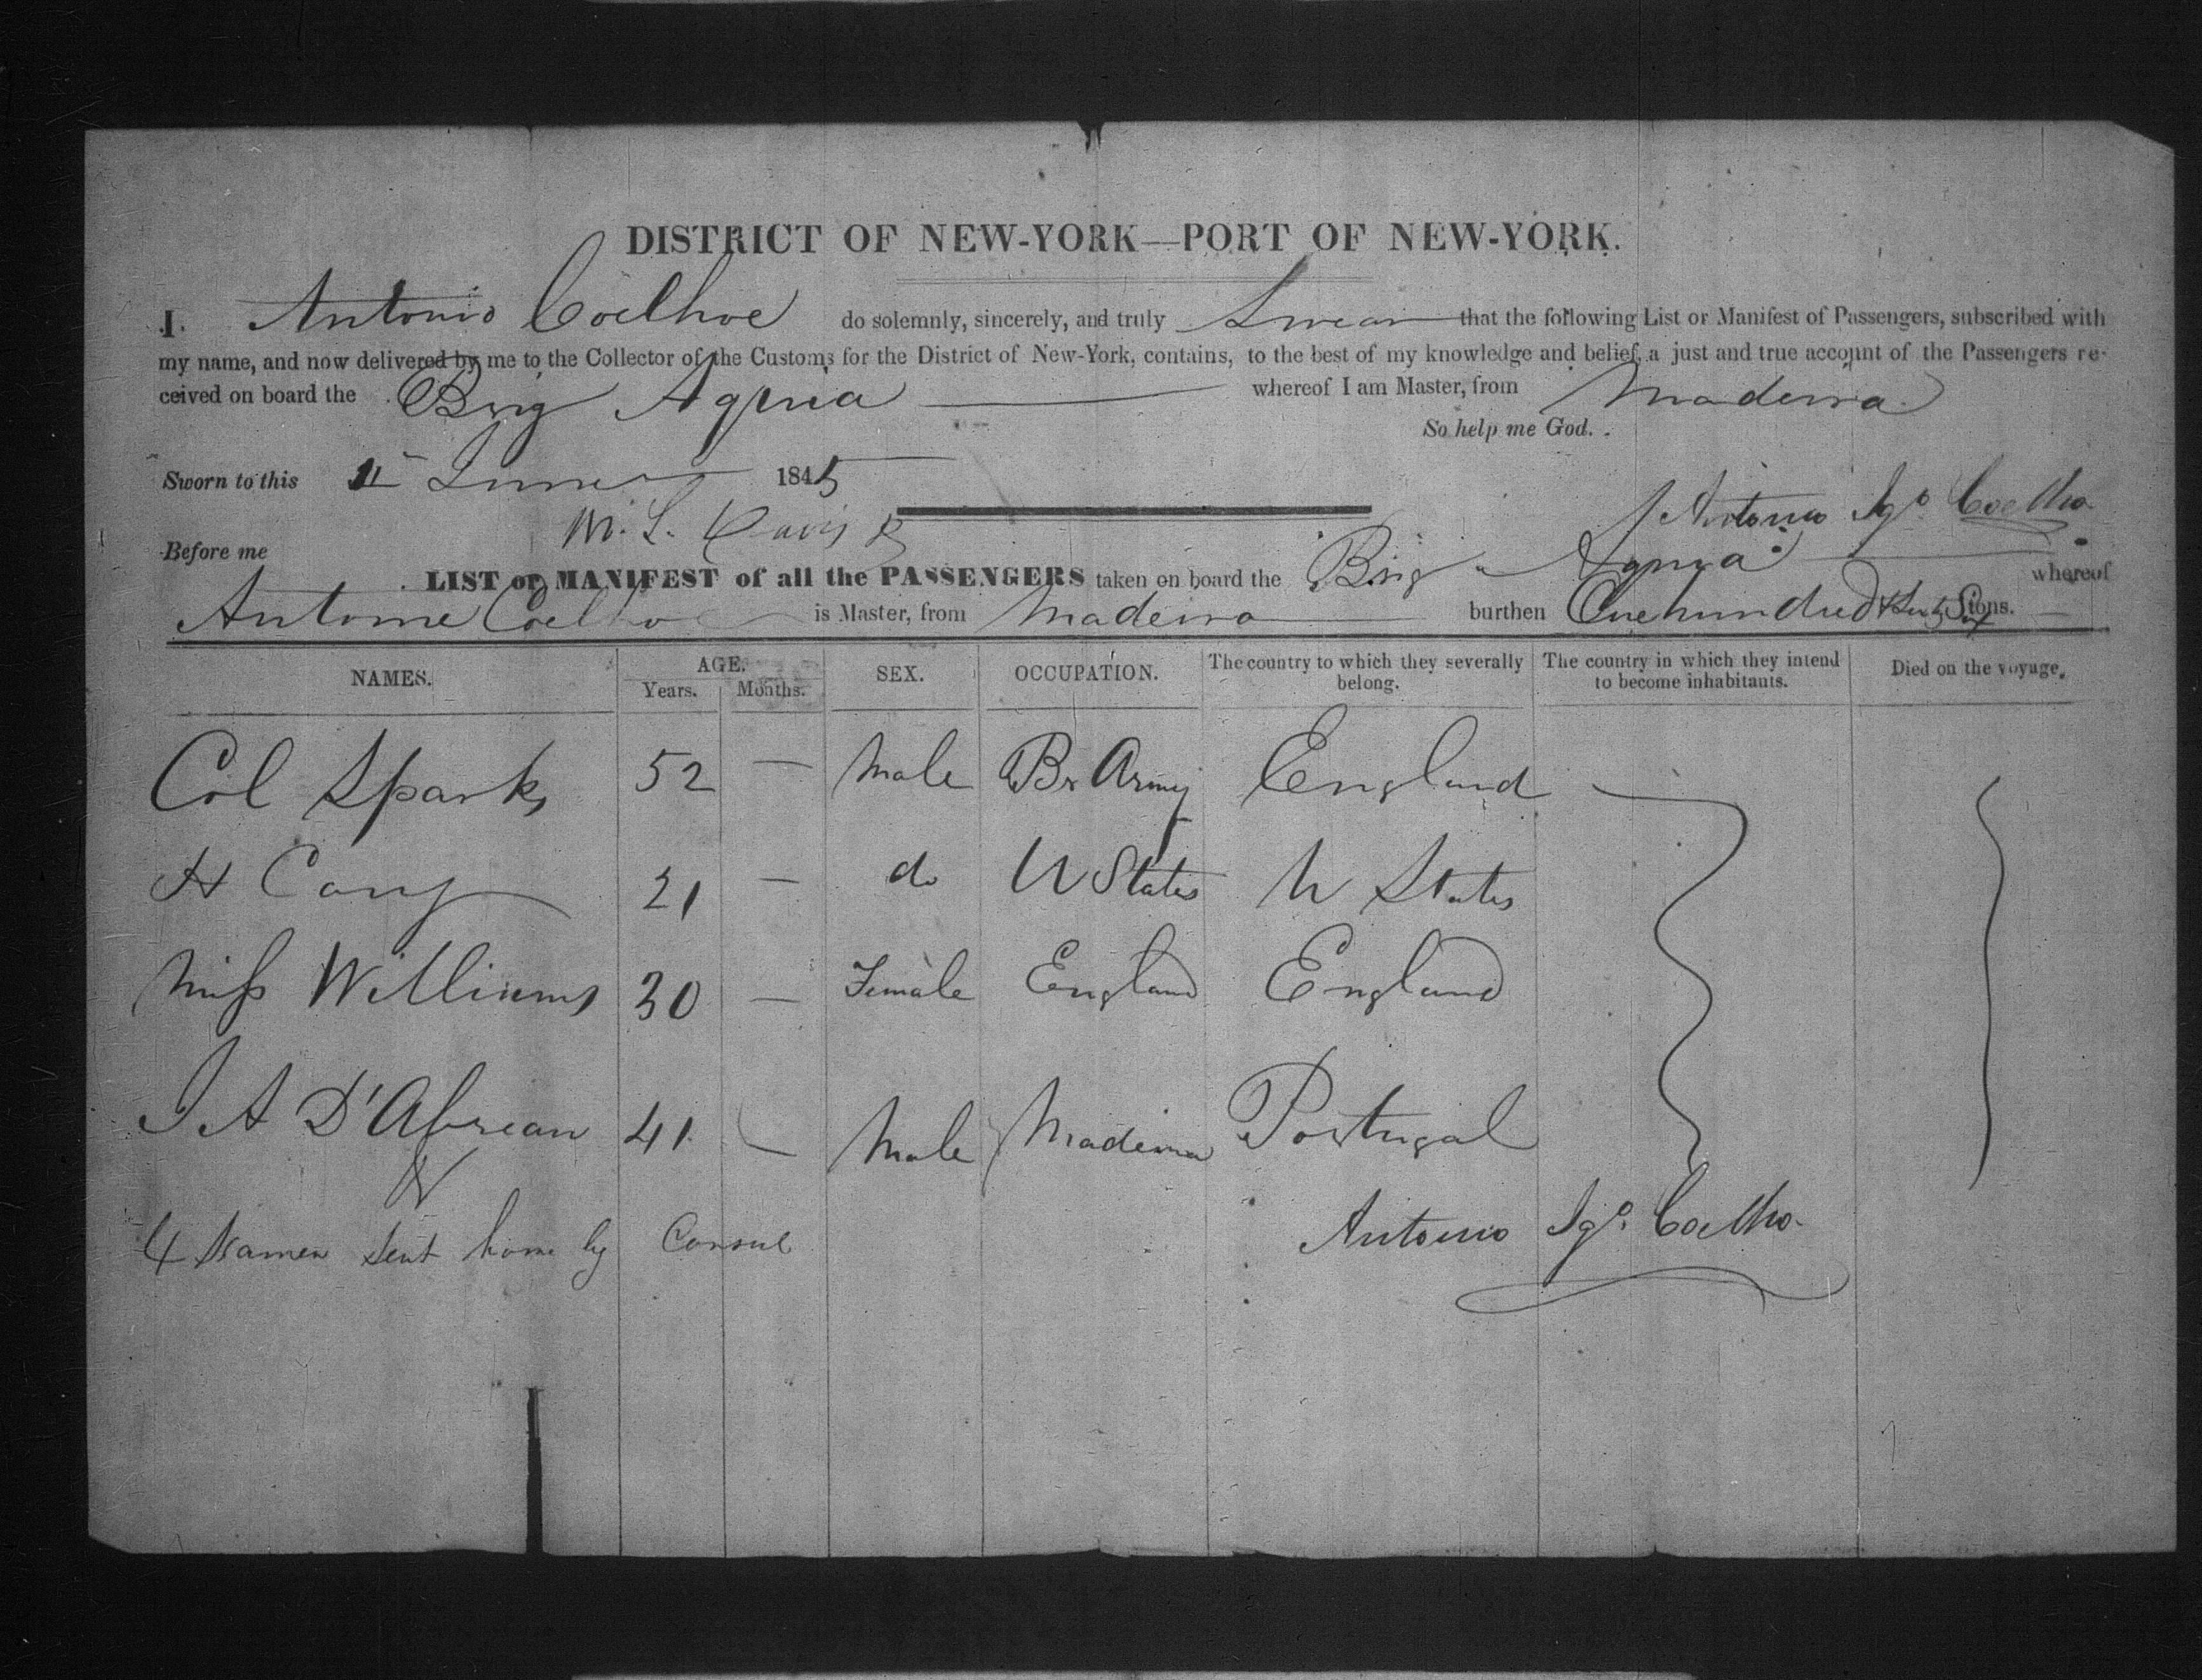 DISTRICT OF NEW-YORK—PORT OF NEW-YORK.
I. Antonio Coelhoe do solemnly, sincerely, and truly Swear that the following List or Manifest of Passengers, subscribed with
my name, and now delivered by me to the Collector of the Customs for the District of New-York, contains, to the best of my knowledge and belief, a just and true account of the Passengers re-
ceived on board the Brig Aguia whereof I am Master, from Madeira
So help me God.
Sworn to this 11 1845
Antonio Igº Coelho
Before me M. L. Davis
LIST or MANIFEST of all the PASSENGERS taken on board the Brig Aguia whereof
Antonie Coelhoe is Master, from Madeira burthen One hundred & Six tons.
NAMES. AGE. SEX. OCCUPATION. The country to which they severally belong. The country in which they intend to become inhabitants. Died on the voyage.
Years. Months.
Col Sparks 52 — Male Br Army England
H Cary 21 — do U States U States
Miss Williams 30 — Female England England
J A D'Abreau 41 — Male Madeira Portugal
4 Seamen sent home by Consul
Antonio Igº Coelho